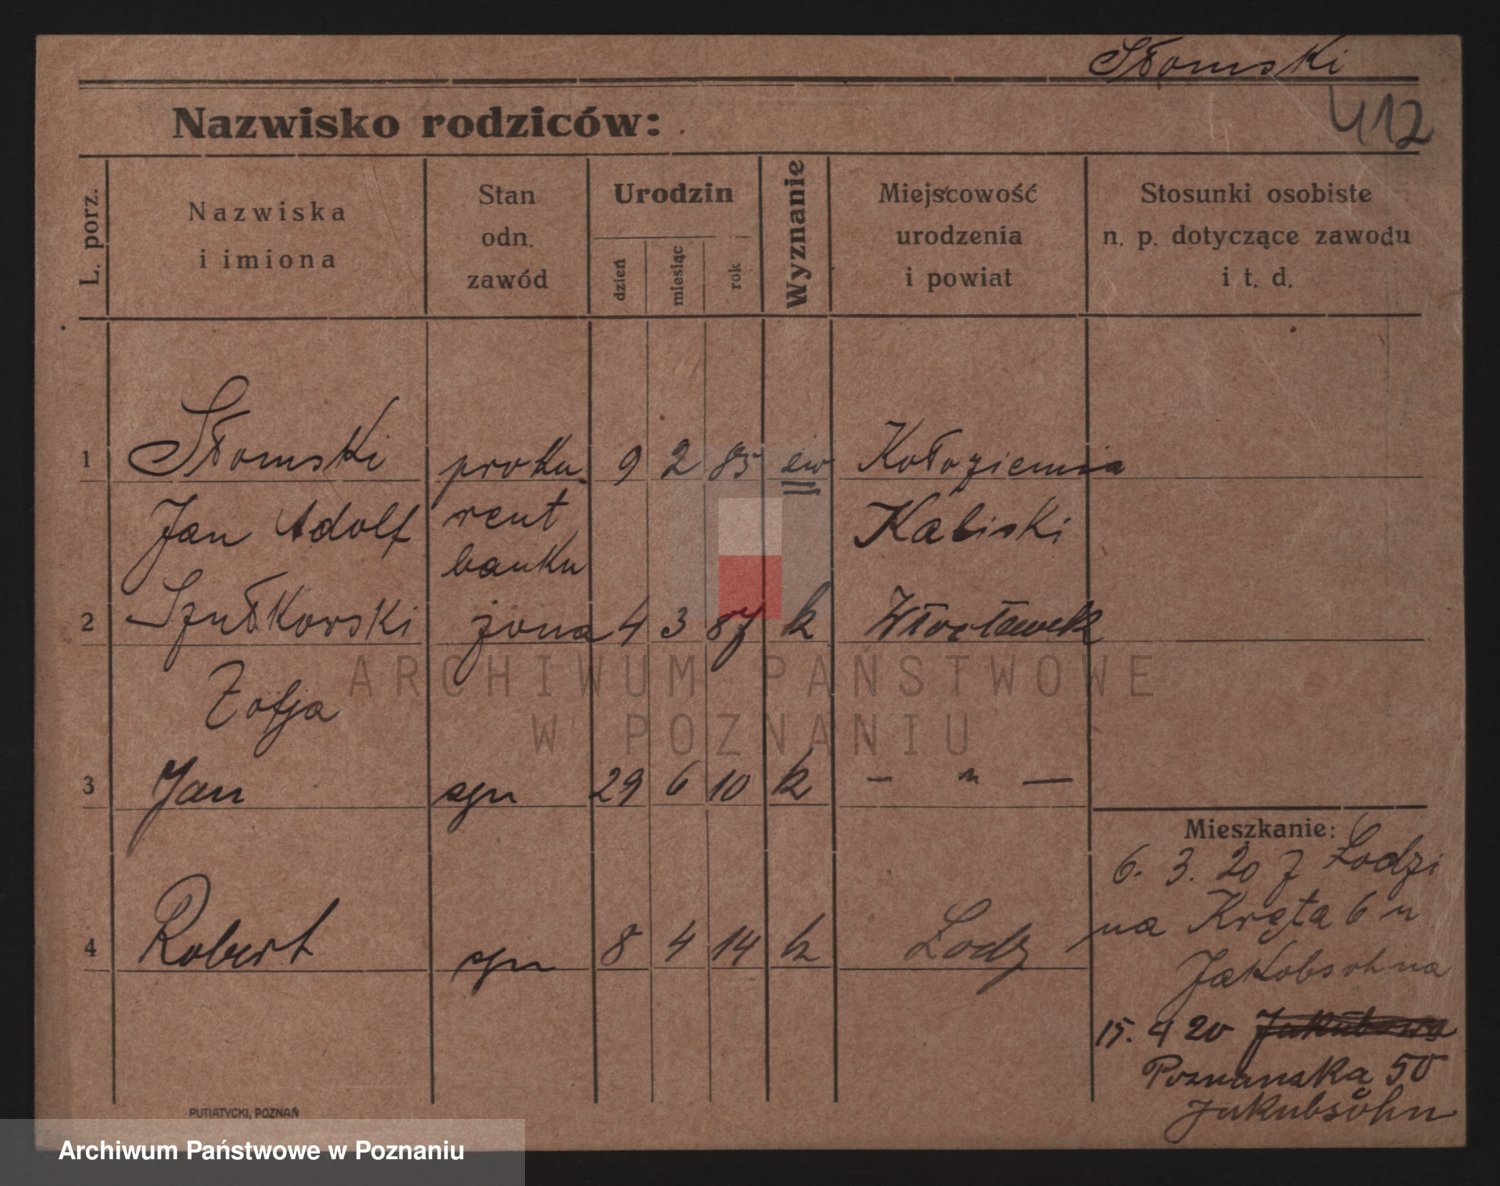 Słomski
412
Nazwisko rodziców:
L. porz.
Nazwiska
i imiona
Stan
odn.
zawód
Urodzin
dzień
miesiąc
rok
Wyznanie
Miejscowość
urodzenia
i powiat
Stosunki osobiste
n. p. dotyczące zawodu
i t. d.
1 Słomski proku 9 2 85 ew Kołoziemia
Jan Adolf rent Kaliski
banku
2 Szułkowski żona 4 3 87 k Włocławek
Zofja
3 Jan syn 29 6 10 k — " —
4 Robert syn 8 4 14 k Lodz
Mieszkanie:
6. 3. 20 z Łodzi
na Kręta 6 u
Jakobsohna
15. 4 20
Poznanska 50
Jakubsohn
PUTIATYCKI, POZNAŃ
ARCHIWUM PAŃSTWOWE
W POZNANIU
Archiwum Państwowe w Poznaniu